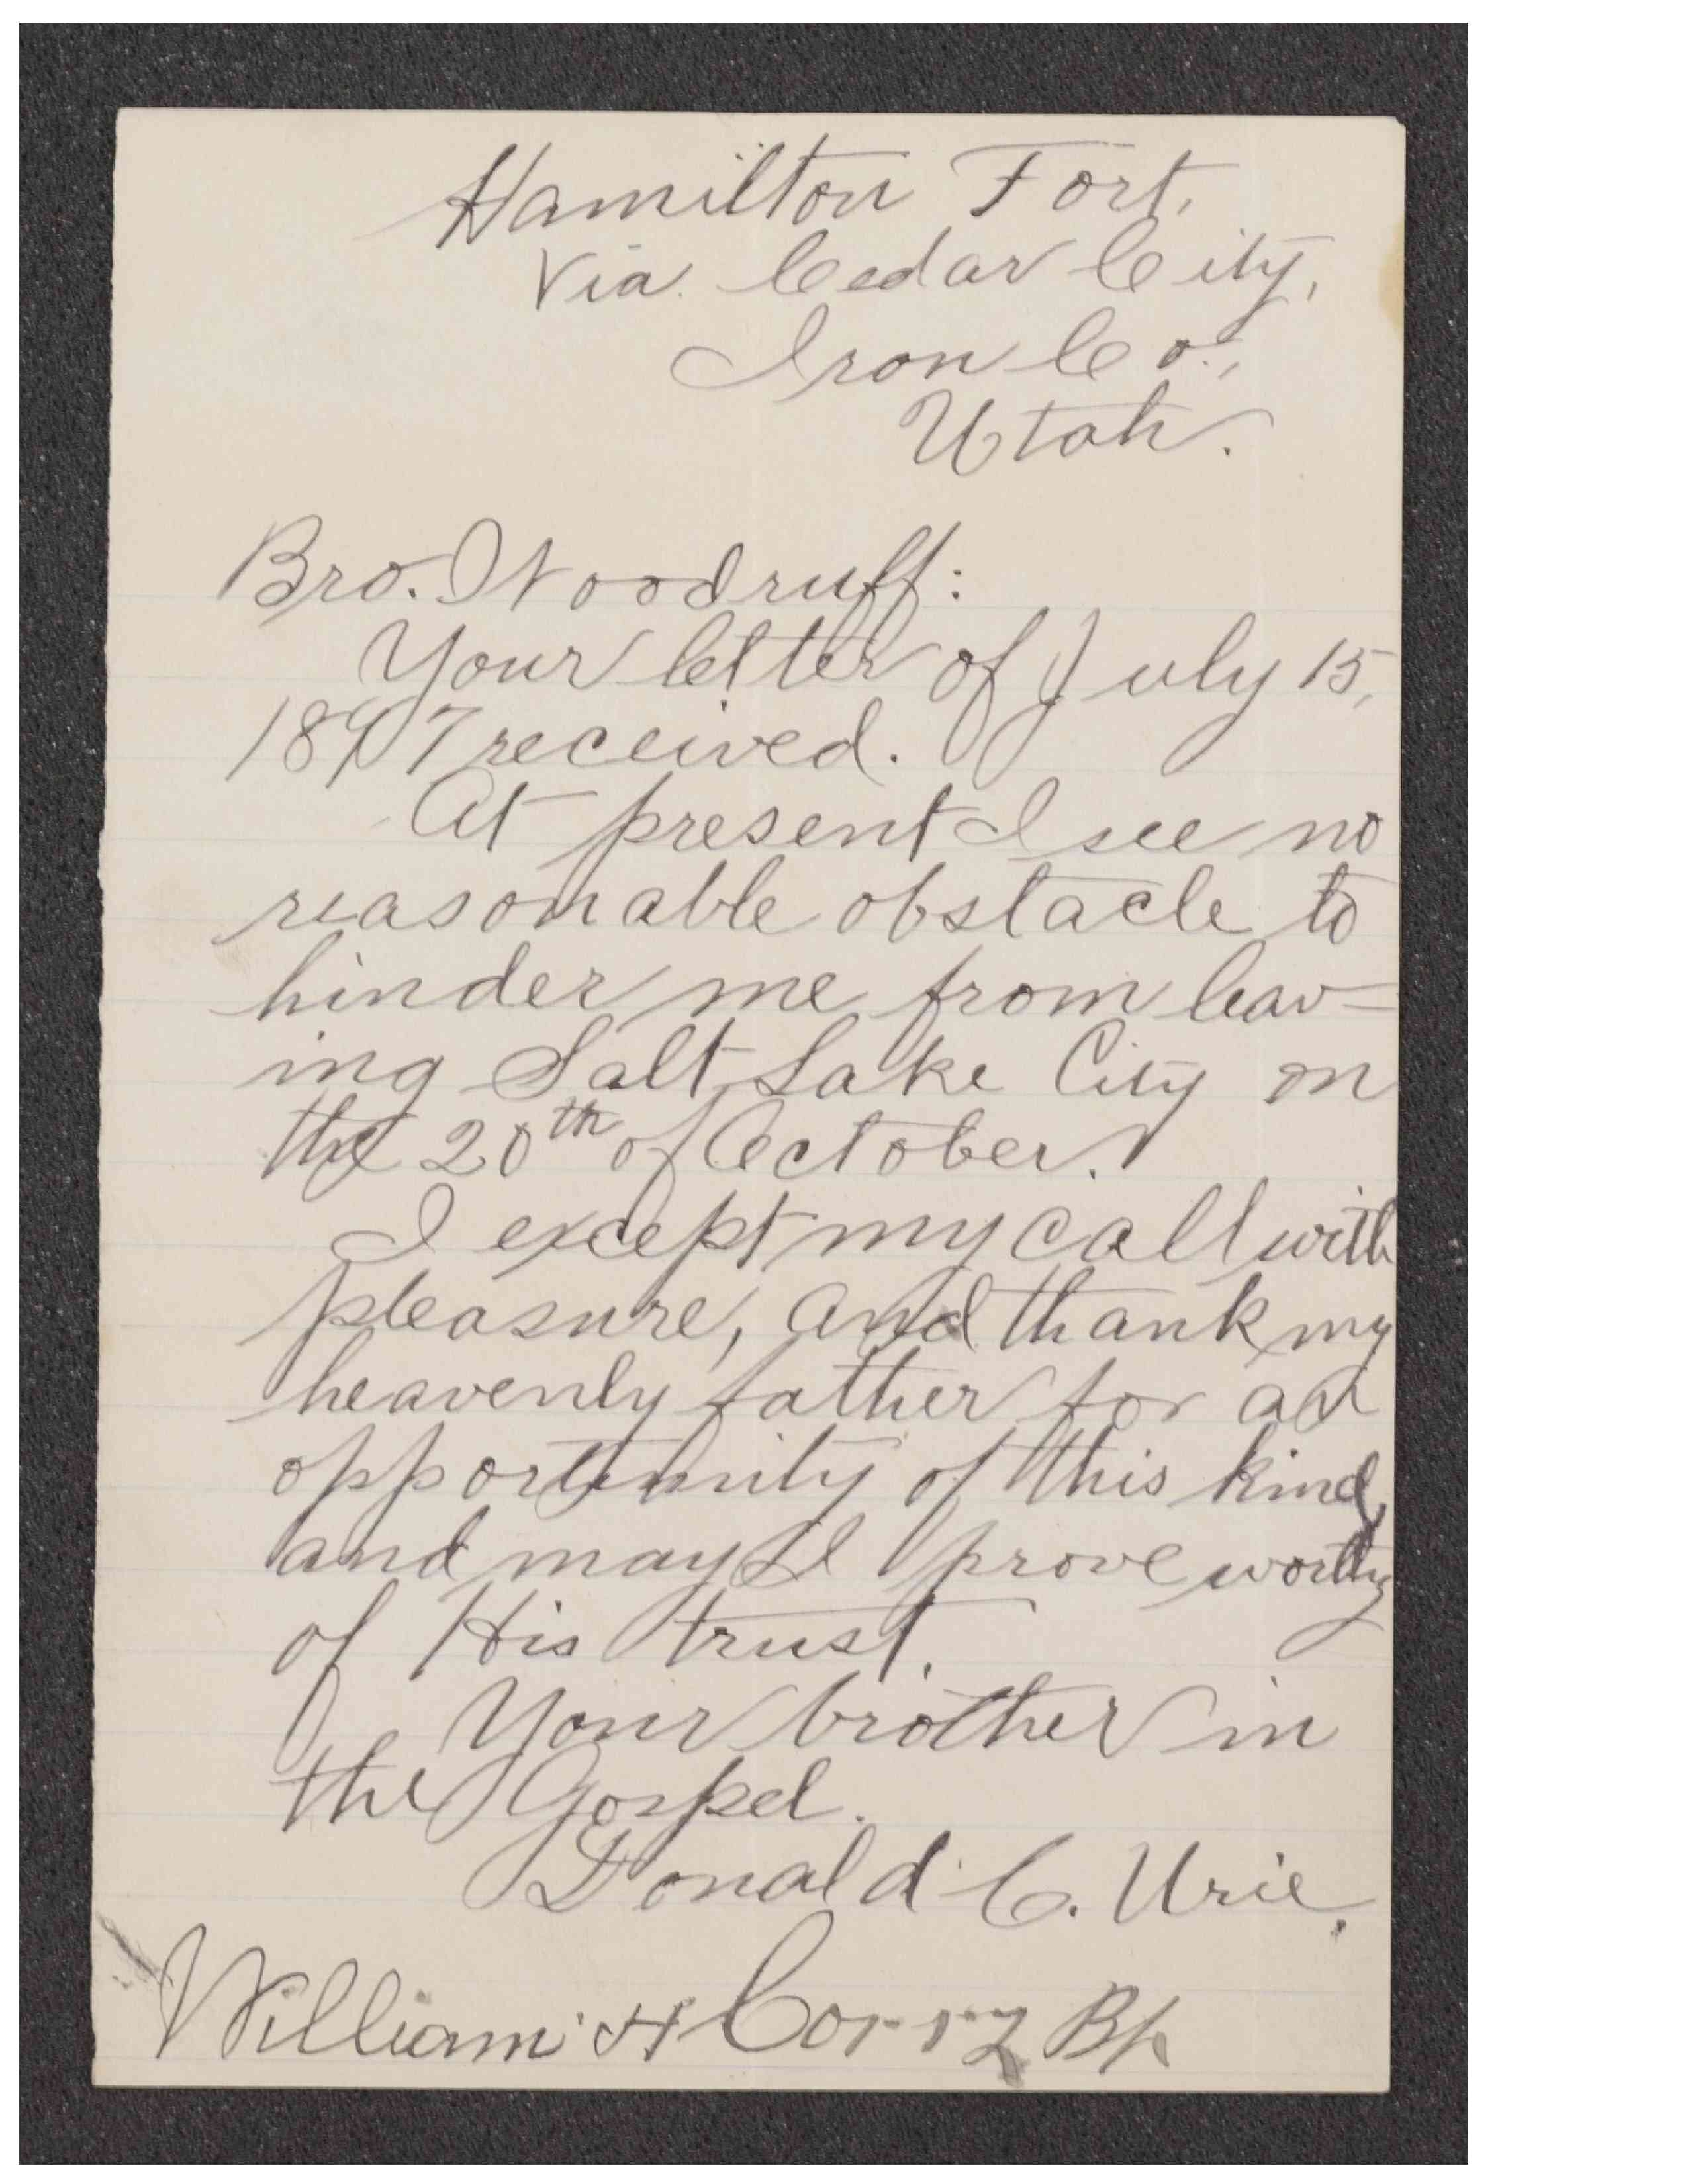 Hamilton Fort,
Via Cedar City,
Iron Co.,
Utah.
Bro. Woodruff:
Your letter of July 15,
1897 received.
At present I see no
reasonable obstacle to
hinder me from leav=
ing Salt Lake City on
the 20th of October.
I except my call with
pleasure, and thank my
heavenly father for an
opportunity of this kind,
and may I prove worthy
of His trust.
Your brother in
the Gospel.
Donald C. Urie.
William H Corry Bp